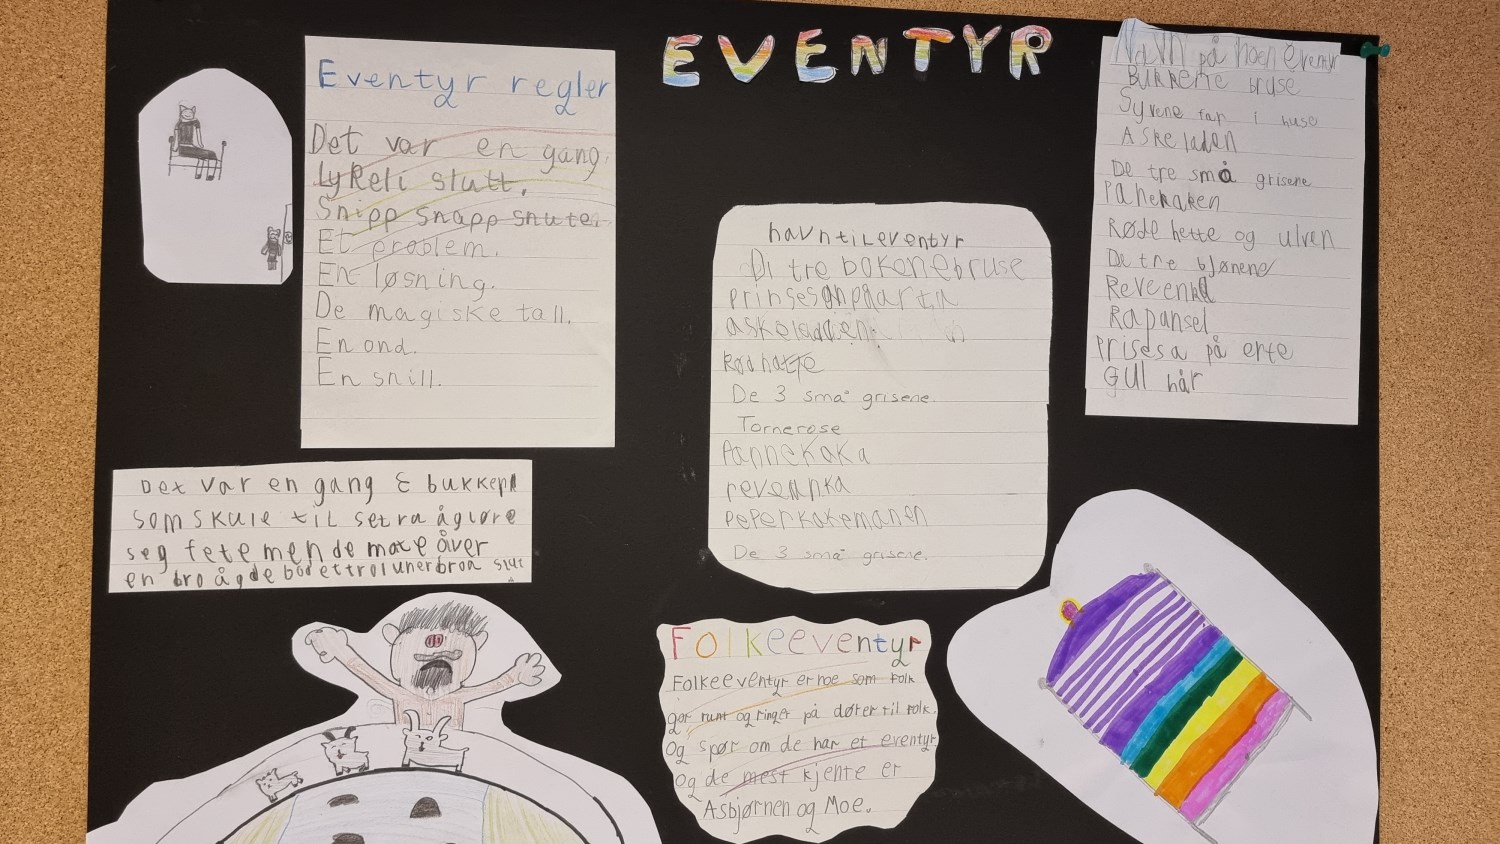 EVENTYR
Eventyr regler
Det var en gang.
Lykeli slutt.
Snipp snapp snute.
Et problem.
En løsning.
De magiske tall.
En ond.
En snill.
Navn på noen eventyr
Bukkene bruse
Syvene far i huse
Askeladen
De tre små grisene
Panekaken
Røde hette og ulven
De tre bjønene
Reveenka
Rapansel
Prisesa på erte
GUl hår
navn til eventyr
Di tre bokene bruse
askeladden
Rødhatte
De 3 små grisene
Tornerose
Pannekaka
reveanka
PePerkakemanen
De 3 små grisene.
Det var en gang 3 bukker
som skule til setra å gløre
seg fete men de mate åver
en bro å g de bod et trol uner broa slut
Folkeeventyr
Folkeeventyr er noe som folk
går runt og ringer på dører til folk.
Og spør om de har et eventyr
Og de mest kjente er
Asbjørnen og Moe.